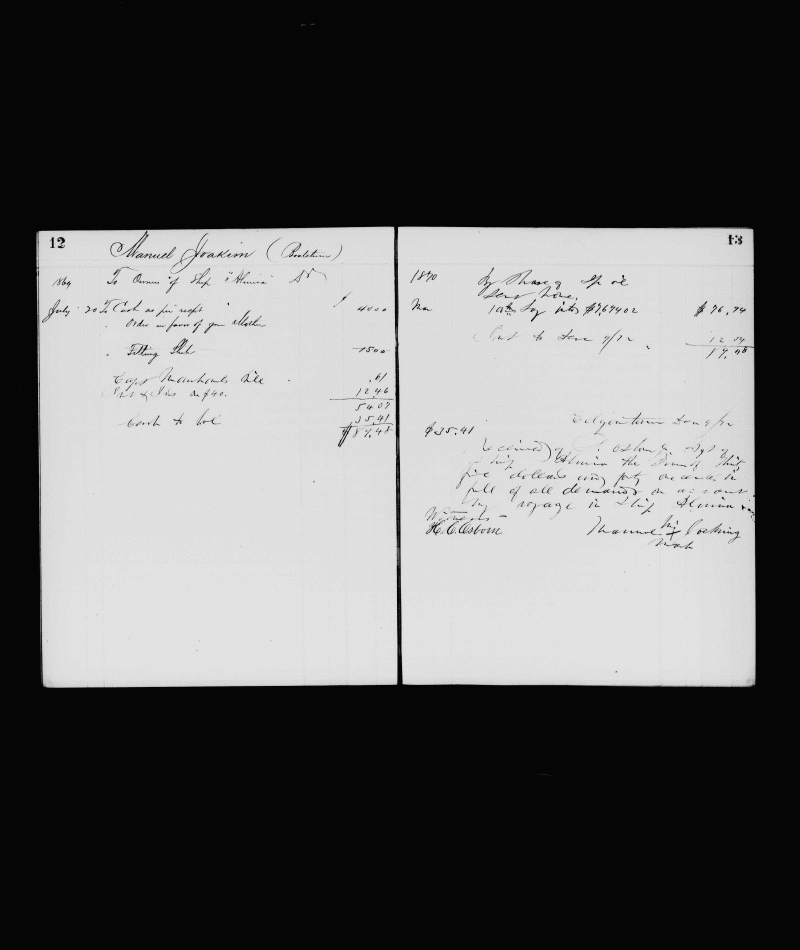 12
Manuel Joakim (Boatsteerer)
1869 To Owners of Ship "Almira" Dr
July 20 To Cash as per rect " $ 4000
" Order in favor of your Mother
" Fitting Slab 1500
Capt Manchards Bill .61
Int & Ins on $40. 12,46
5407
Cash to bal 35,41
$ 89,48
13
1870 By Share of Sp oil
Mar 10 $7,674 02 $ 76,74
12 74
89,48
Edgartown
$35.41
Received of Osborn Jr. Agt of
Ship Almira the Sum of thirty
five dollars and forty one cents in
full of all demands on account
my voyage in Ship Almira
Witness
H. C. Osborn Manuel his X Joaking
Mark